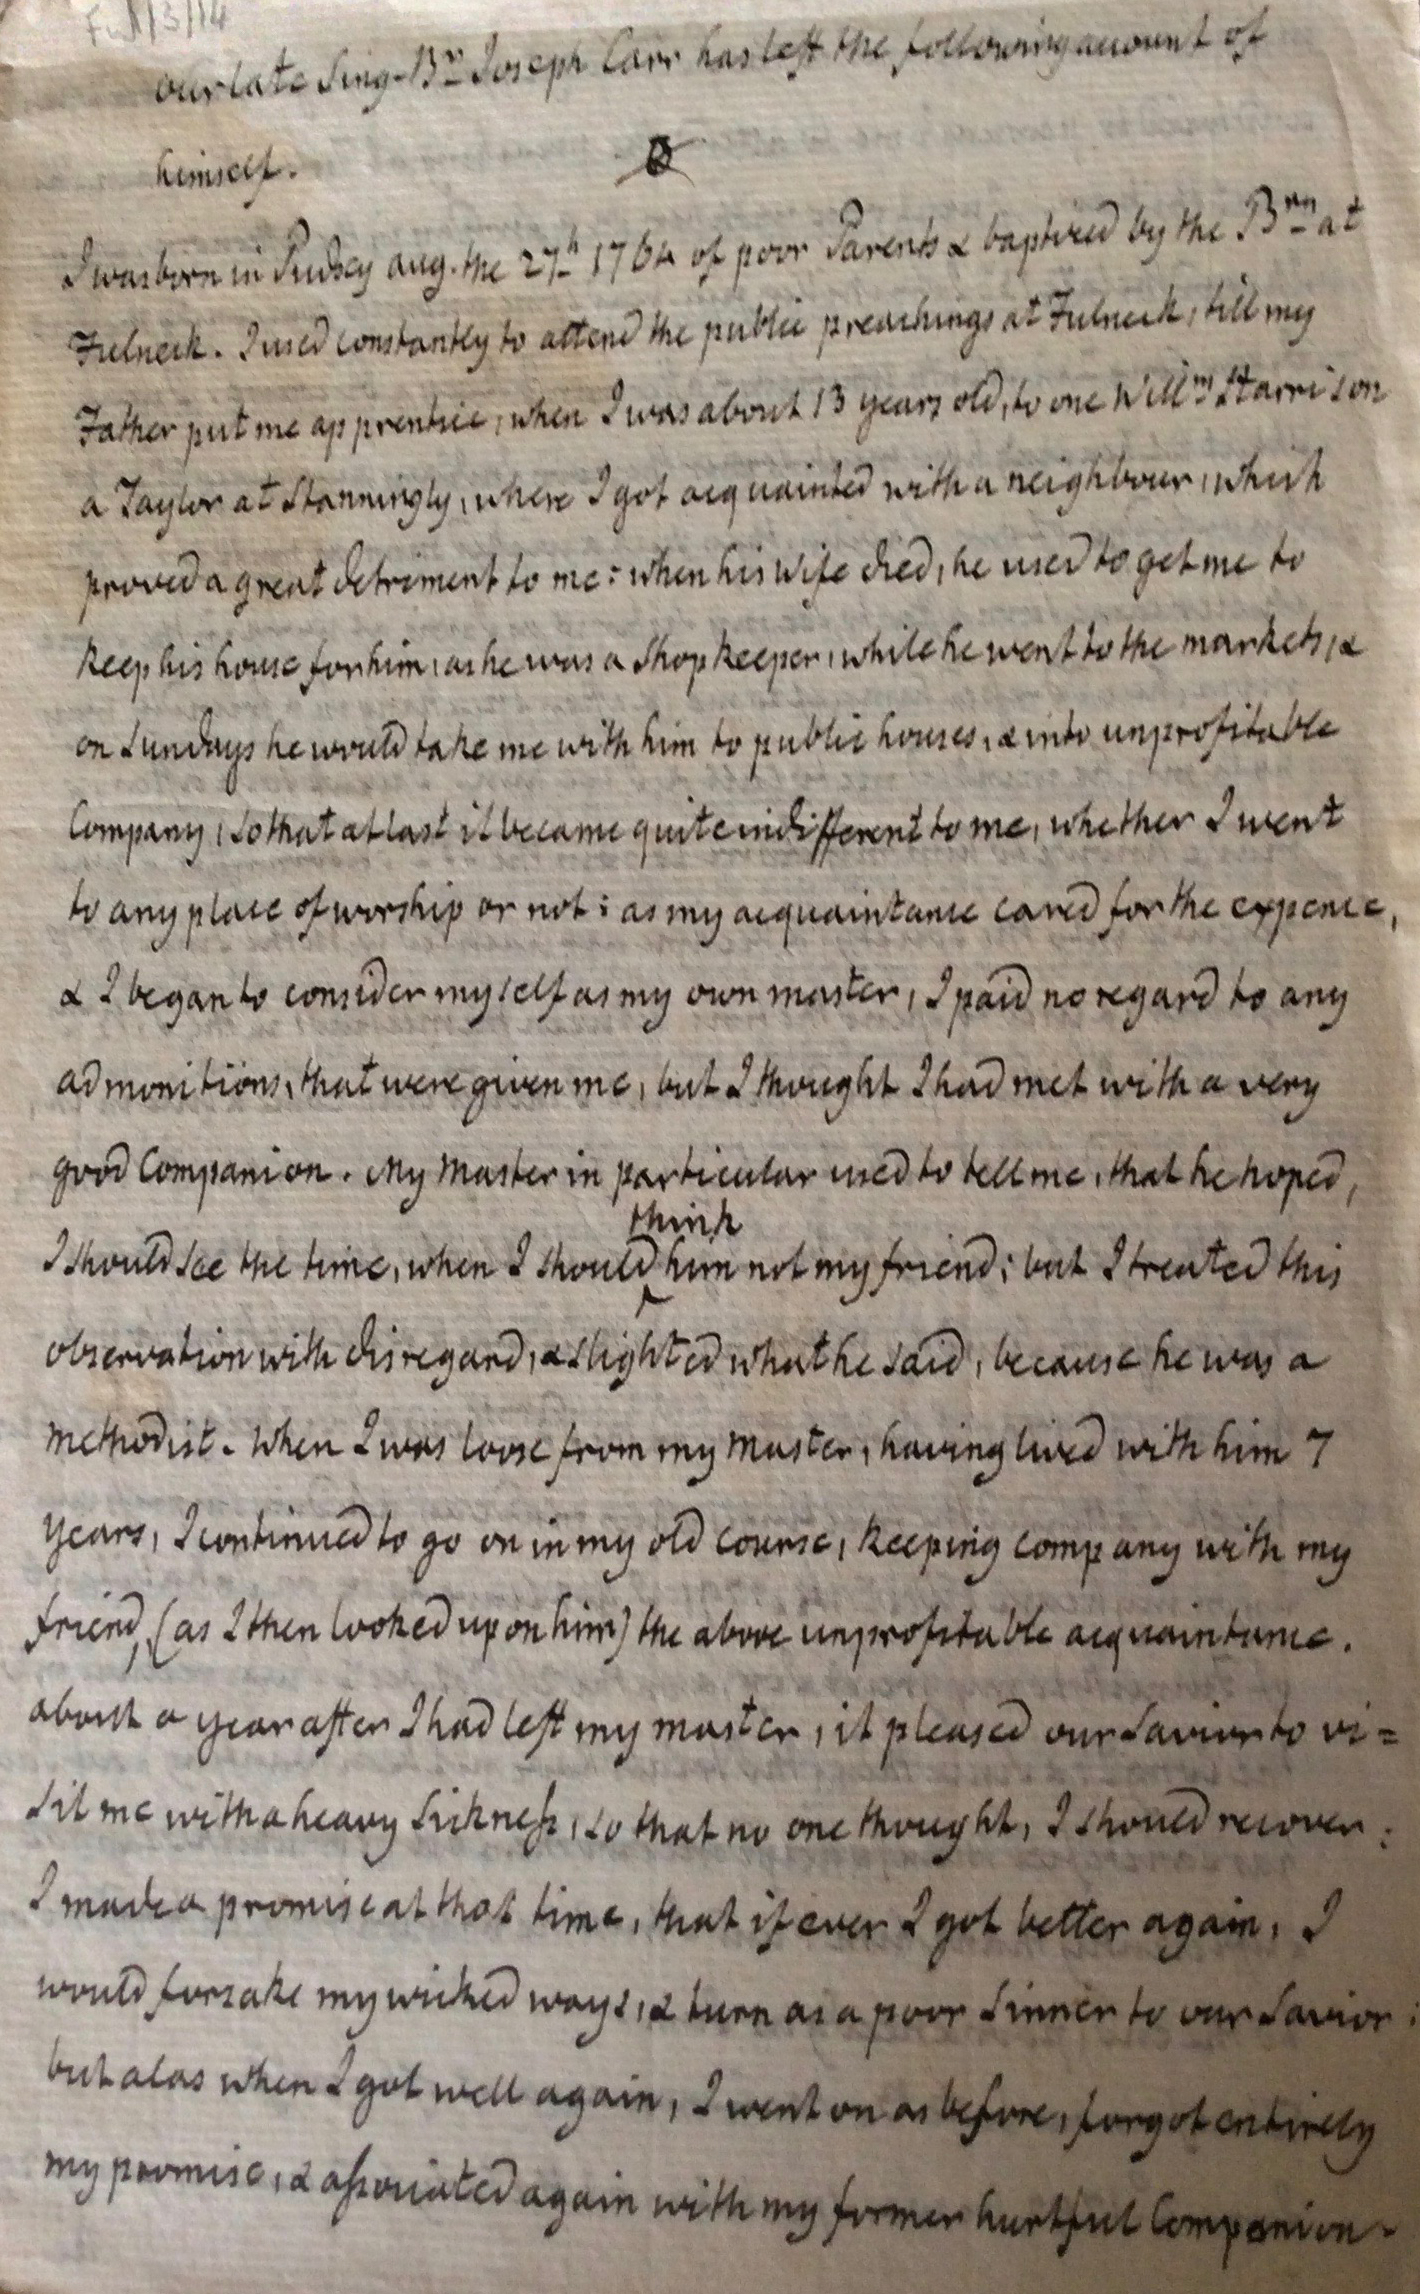 Ful/3/14
our late Sing. Br. Joseph Carr has left the following account of
himself.
I was born in Pudsey aug. the 27th 1764 of poor Parents & baptized by the Brn at
Fulneck. I used constantly to attend the public preachings at Fulneck, till my
Father put me apprentice, when I was about 13 years old, to one Willm Harrison
a Taylor at Stanningly, where I got acquainted with a neighbour, which
proved a great detriment to me: when his Wife died, he used to get me to
keep his house for him, as he was a Shopkeeper, while he went to the markets, &
on Sundays he would take me with him to public houses, & into unprofitable
Company, so that at last it became quite indifferent to me, whether I went
to any place of worship or not: as my acquaintance cared for the expence,
& I began to consider myself as my own master, I paid no regard to any
admonitions, that were given me, but I thought I had met with a very
good Companion. My Master in particular used to tell me, that he hoped,
I should see the time, when I should think him not my friend; but I treated this
observation with disregard, & slighted what he said, because he was a
methodist. When I was loose from my Master, having lived with him 7
years, I continued to go on in my old course, keeping company with my
friend, (as I then looked upon him) the above unprofitable acquaintance.
about a year after I had left my master, it pleased our Savior to vi=
sit me with a heavy Sickness, so that no one thought, I should recover:
I made a promise at that time, that if ever I got better again, I
would forsake my wicked ways, & turn as a poor Sinner to our Savior:
but alas when I got well again, I went on as before, forgot entirely
my promise, & associated again with my former hurtful Companion.